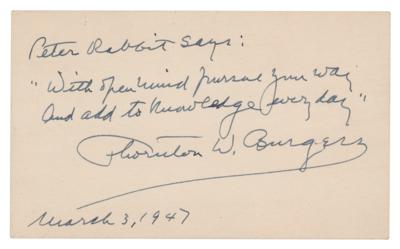 Peter Rabbit says:
"With open mind pursue your way
And add to knowledge every day"
Thornton W. Burgess
March 3, 1947